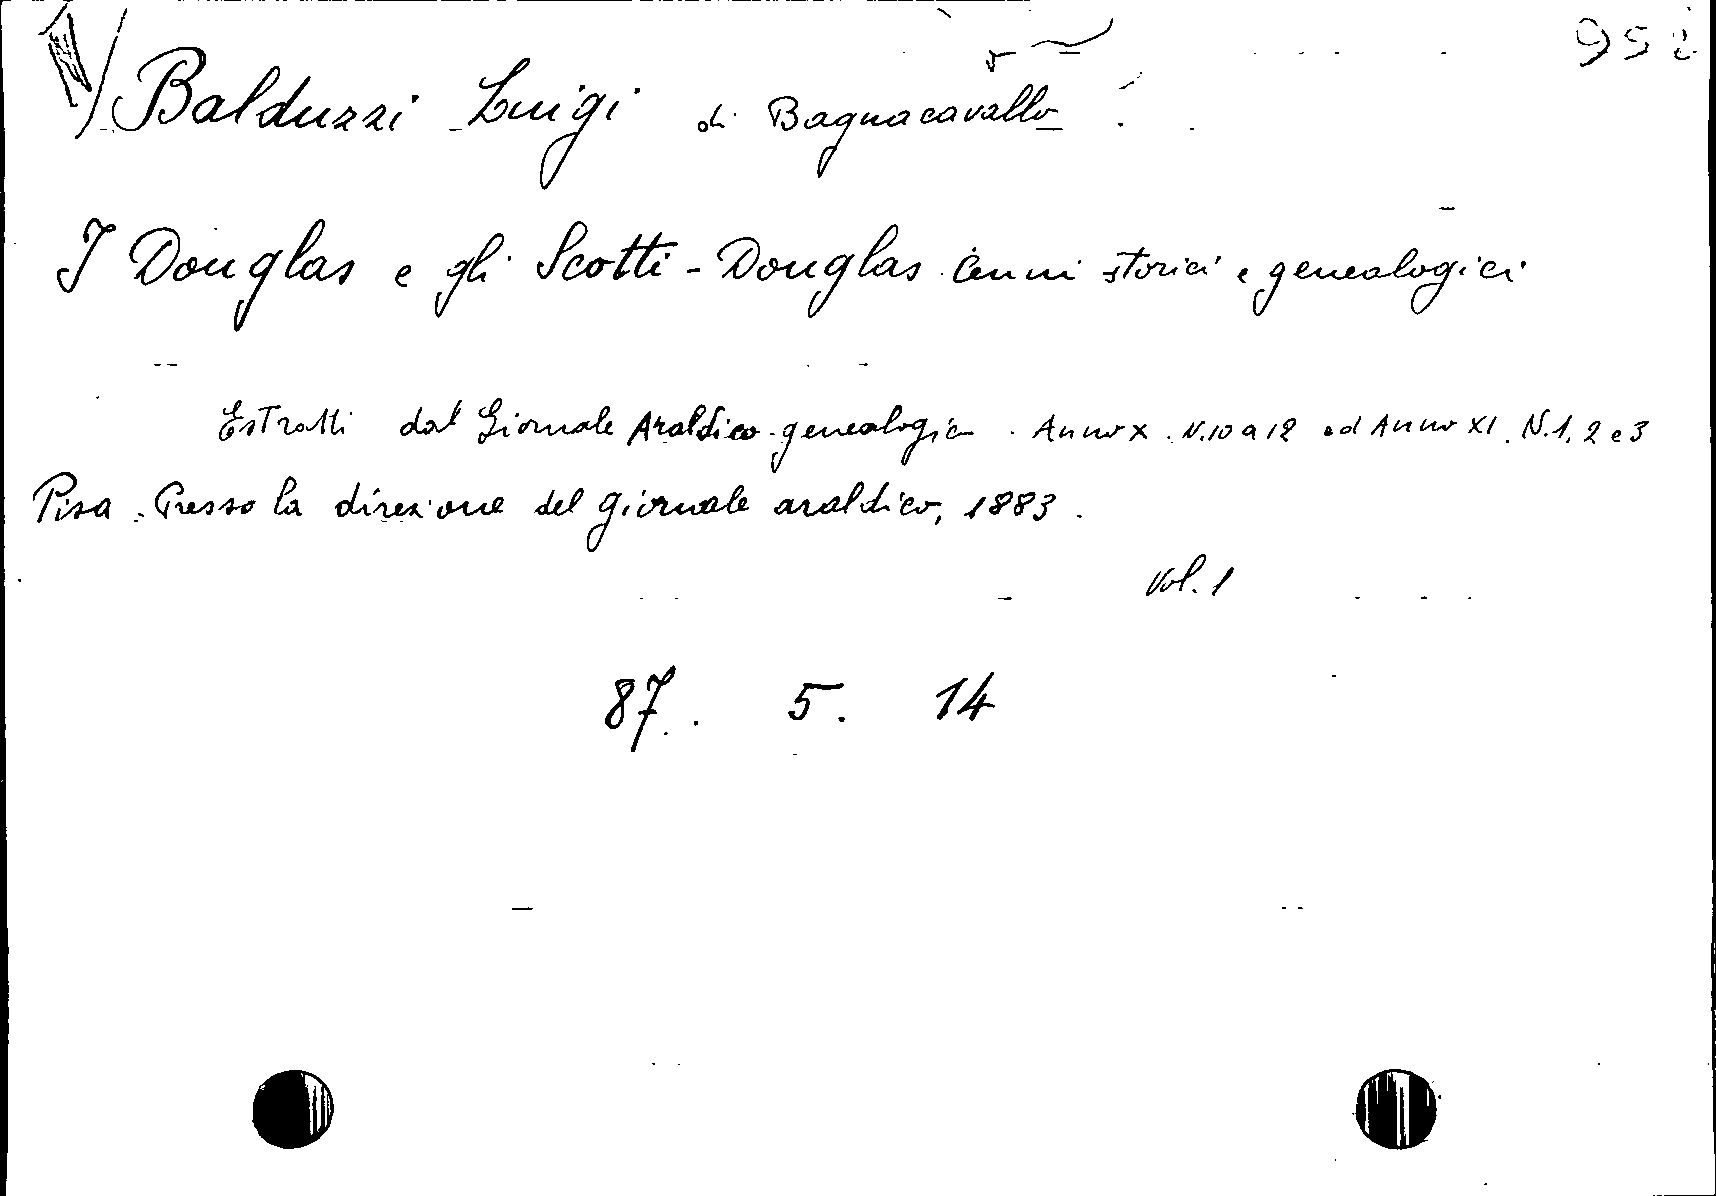 952
Balduzzi Luigi di Bagnacavallo
I Douglas e gli Scotti-Douglas. Cenni storici e genealogici
Estratti dal Giornale Araldico-genealogico. Anno X. N. 10 a 12 ed Anno XI. N. 1, 2 e 3
Pisa. Presso la direzione del giornale araldico, 1883.
Vol. 1
87. 5. 14